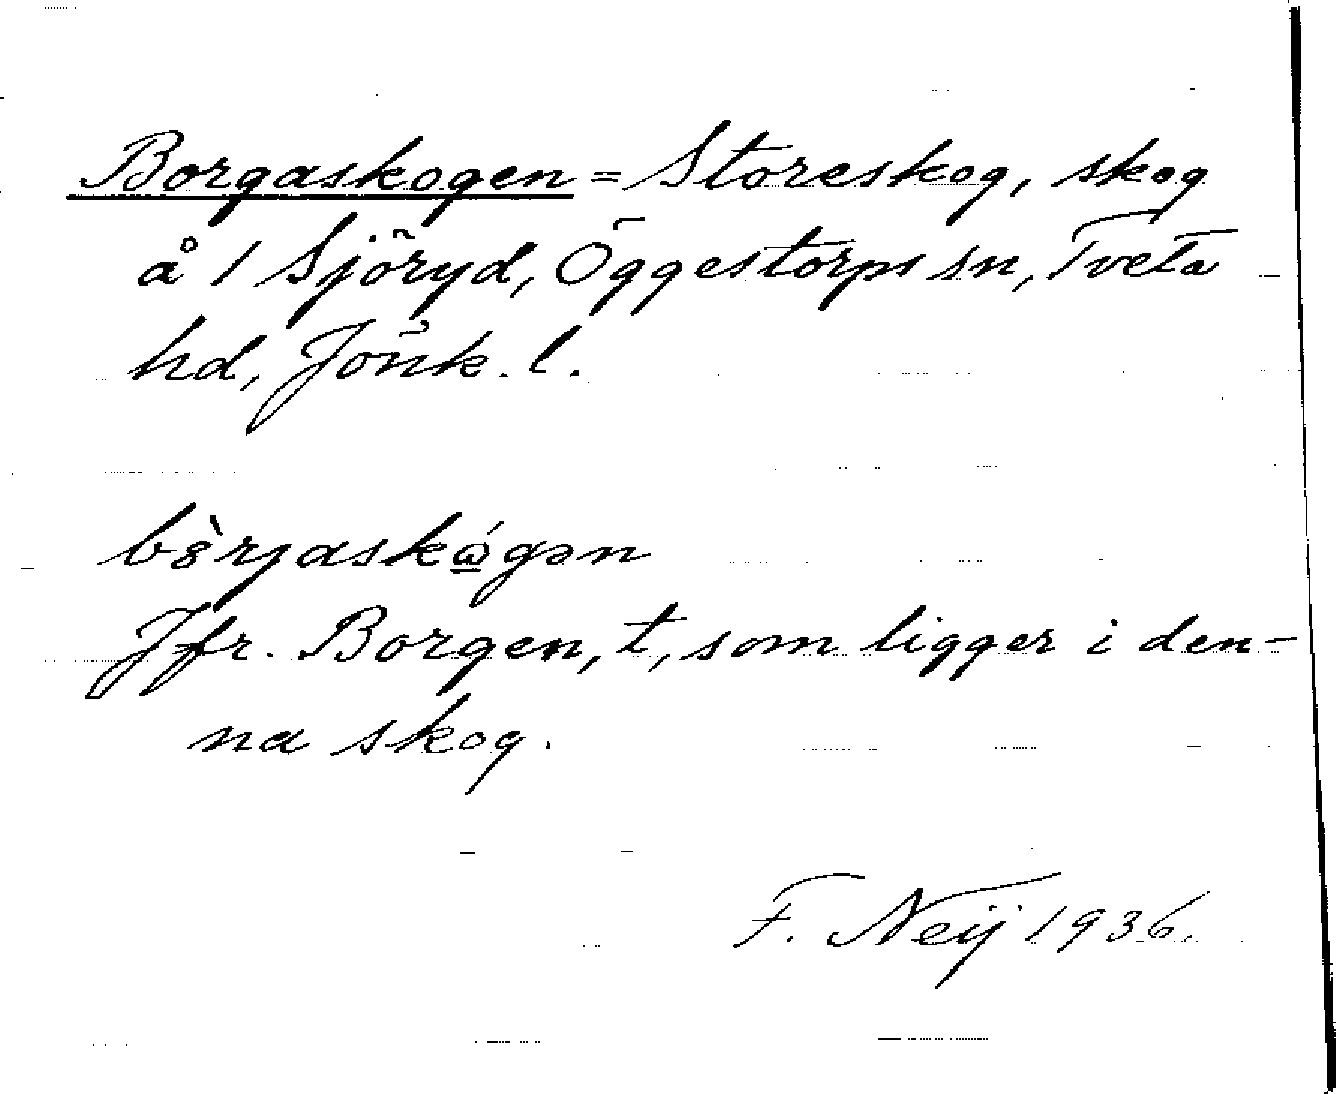 Borgaskogen = Storeskog, skog
å 1 Sjöryd, Öggestorps sn, Tveta
hd, Jönk. l.
Jfr. Borgen, t, som ligger i den-
na skog.
F. Neij 1936.